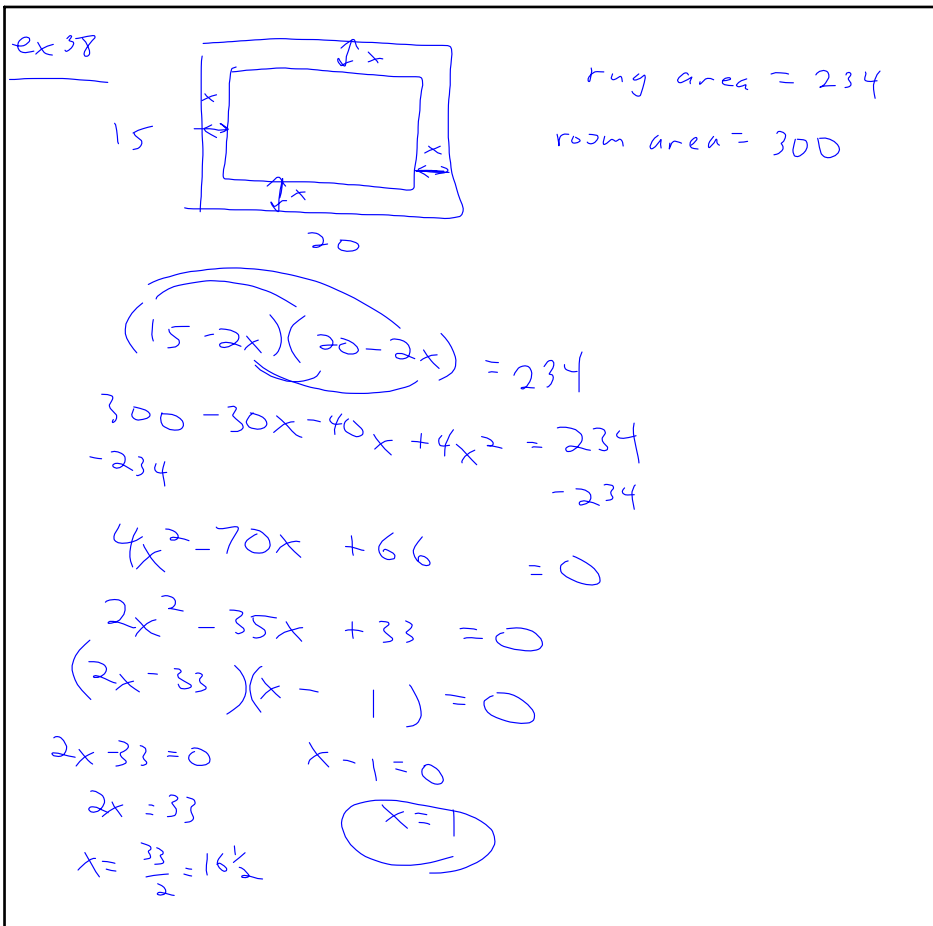 ex 38
x
rug area = 234
x
15
room area = 300
x
x
20
(15 - 2x)(20 - 2x) = 234
300 - 30x - 40x + 4x² = 234
-234 -234
4x² - 70x + 66 = 0
2x² - 35x + 33 = 0
(2x - 33)(x - 1) = 0
2x - 33 = 0 x - 1 = 0
2x = 33 x = 1
x = 33/2 = 16 1/2